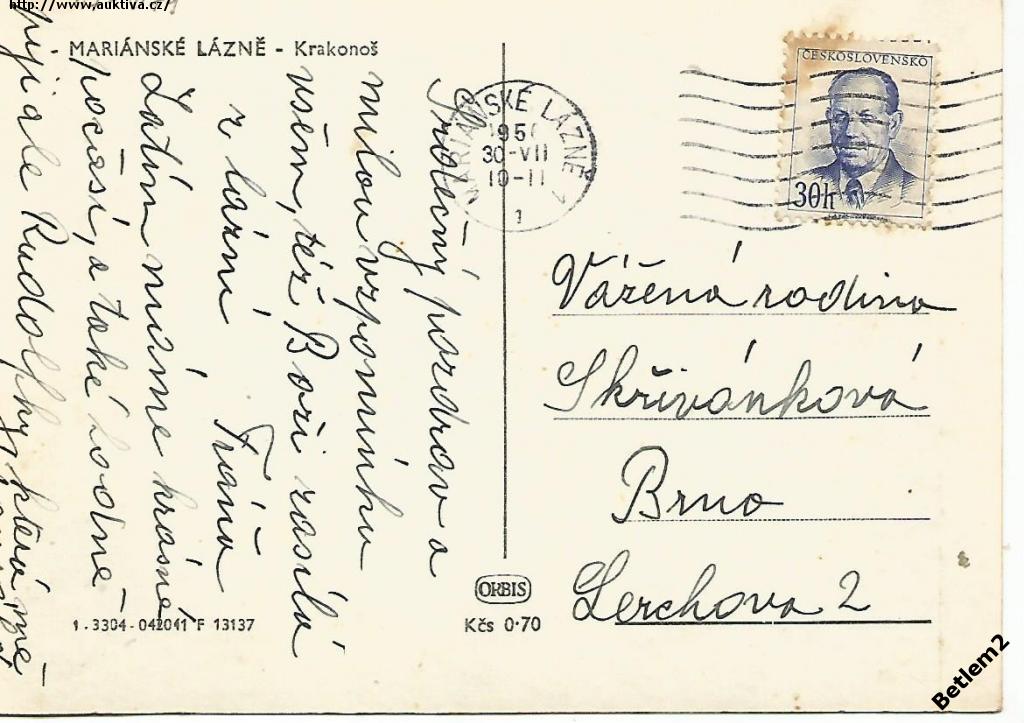 http://www.auktiva.cz/
- MARIÁNSKÉ LÁZNĚ - Krakonoš
Srdečný pozdrav a
milou vzpomínku
všem, též Boži zasílá
z lázní Fráňa
Zatím máme krásné
počasí, a také hodně
pijí ale Rudolfky, která mě
MARIÁNSKÉ LÁZNĚ 1
30-VII
10-11
1
ČESKOSLOVENSKO
30h
Vážená rodina
Skřivánková
Brno
Lerchova 2
ORBIS
Kčs 0·70
1-3304-042011 F 13137
Betlem2